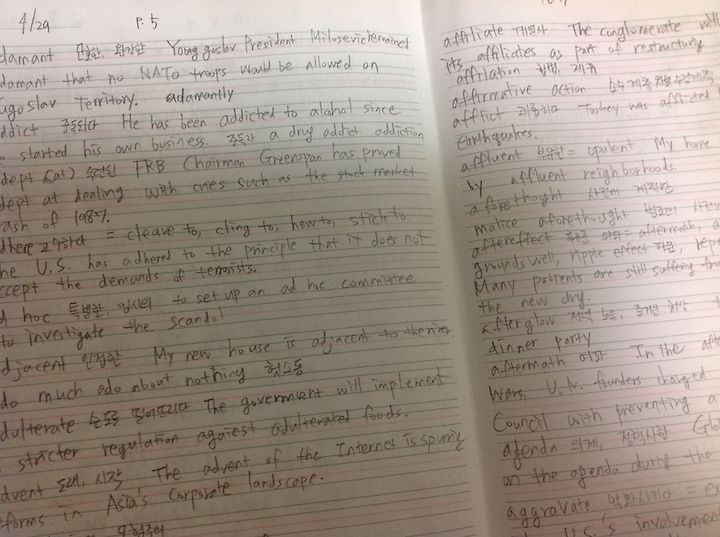 4/29 P. 5
damant 단호한, 완강한 Yougoslav President Milosevic remained
damant that no NATO troops would be allowed on
ugoslav Territory. adamantly
ddict 중독되다 He has been addicted to alcohol since
e started his own business. 중독자 a drug addict addiction
dept (at) 숙련된 FRB Chairman Greenspan has proved
dept at dealing with crises such as the stock market
rash of 1987.
dhere 고수하다 = cleave to, cling to, hew to, stick to
he U.S. has adhered to the principle that it does not
ccept the demands of terrorists.
d hoc 특별한, 임시의 to set up an ad hoc committee
to investigate the scandal
djacent 인접한 My new house is adjacent to the river
do much ado about nothing 헛소동
dulterate 순도를 떨어뜨리다 The goverment will implement
stricter regulation agaiest adulterated foods.
dvent 도래, 시작 The advent of the Internet is spurring
forms in Asia's corporate landscape.
affiliate 계열사 The conglomerate will
its affiliates as part of restructuring
affiliation 합병, 제휴
affirmative action
afflict 괴롭히다 Turkey was afflicted
Earthquakes.
affluent 부유한 = opulent My home
by affluent neighborhoods.
aforethought 사전에 계획한
malice aforethought 범죄의 사전
aftereffect 여파 = aftermath,
groundswell, ripple effect 파문,
Many patients are still suffering from
the new drug.
afterglow 저녁 노을, 즐거운
dinner party
aftermath 여파 In the
Wars, U.N. founders charged
Council with preventing
agenda 의제,
on the agenda during the
aggravate 악화시키다 =
U.S.'s involvement